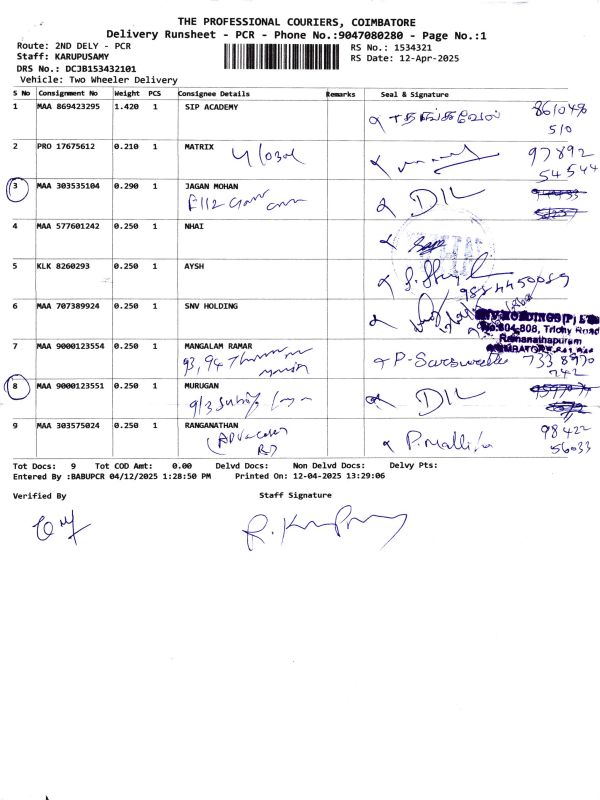 THE PROFESSIONAL COURIERS, COIMBATORE
Delivery Runsheet - PCR - Phone No.:9047080280 - Page No.:1
Route: 2ND DELY - PCR RS No.: 1534321
Staff: KARUPUSAMY RS Date: 12-Apr-2025
DRS No.: DCJB153432101
Vehicle: Two Wheeler Delivery
S No Consignment No Weight PCS Consignee Details Remarks Seal & Signature
1 MAA 869423295 1.420 1 SIP ACADEMY
510
2 PRO 17675612 0.210 1 MATRIX 97892
54544
3 MAA 303535104 0.290 1 JAGAN MOHAN DIL
4 MAA 577601242 0.250 1 NHAI
5 KLK 8260293 0.250 1 AYSH
6 MAA 707389924 0.250 1 SNV HOLDING
No.804-808, Trichy Road
Ramanathapuram
7 MAA 9000123554 0.250 1 MANGALAM RAMAR
93, 94
8 MAA 9000123551 0.250 1 MURUGAN DIL
9 MAA 303575024 0.250 1 RANGANATHAN P. 98422
56033
Tot Docs: 9 Tot COD Amt: 0.00 Delvd Docs: Non Delvd Docs: Delvy Pts:
Entered By :BABUPCR 04/12/2025 1:28:50 PM Printed On: 12-04-2025 13:29:06
Verified By Staff Signature